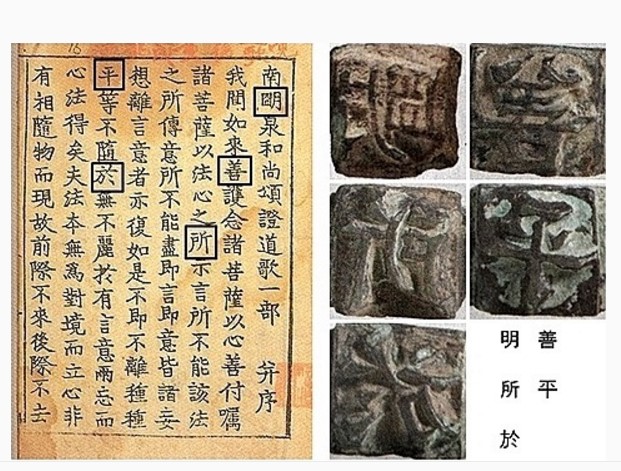 南眀泉和尚頌證道歌一部 并序
我聞如來善護念諸菩薩以心善付囑
諸菩薩以法心之所示言所不能該法
之所傳意所不能盡即言即意皆諸妄
想離言意者亦復如是不即不離種種
平等不隨扵無不麗扵有言意兩忘而
心法得矣夫法夲無為對境而立心非
有相隨物而現故前際不來後際不去
明 善
所 平
於